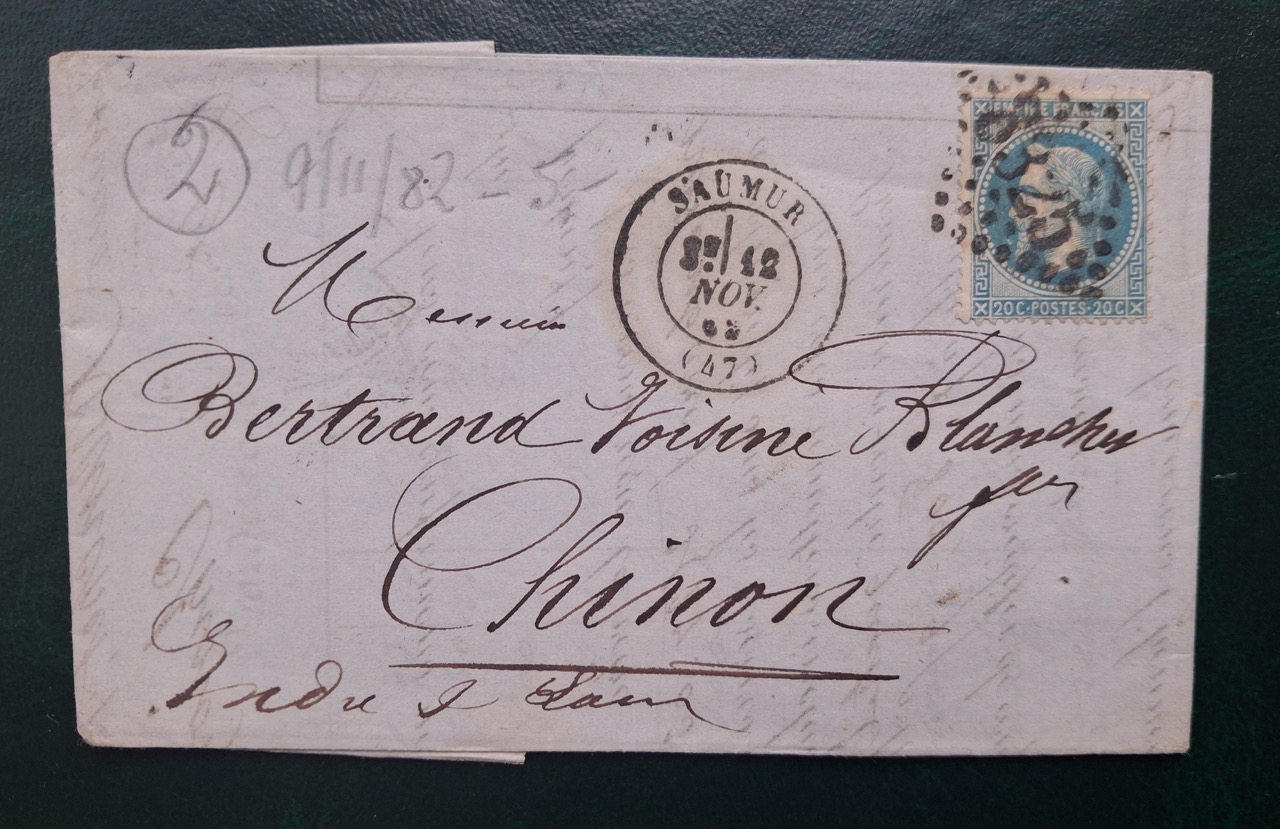 2
9/11/82 – 5
SAUMUR
12
NOV.
(47)
EMPIRE FRANÇAIS
20C·POSTES·20C
Messieurs
Bertrand Voisine Blanchet
Chinon
Indre & Loire